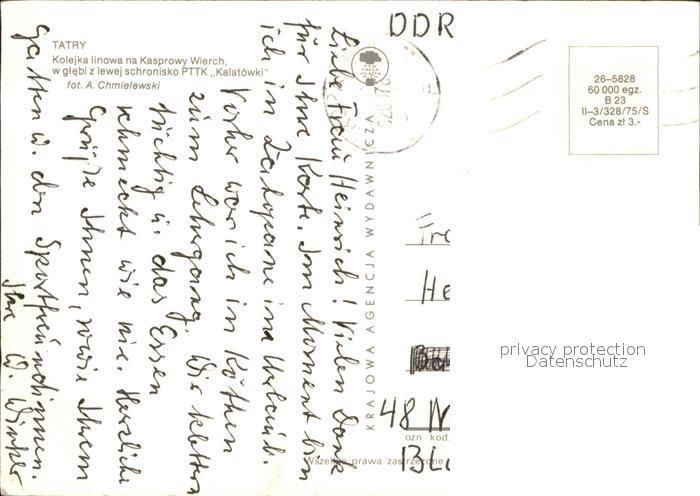 TATRY
Kolejka linowa na Kasprowy Wierch,
w głębi z lewej schronisko PTTK „Kalatówki"
fot. A. Chmielewski
Liebe Frau Heinrich! Vielen Dank
für Ihre Karte. Im Moment bin
ich in Zakopane im Urlaub.
Vorher war ich in Köthen
zum Lehrgang. Wir klettern
tüchtig u. das Essen
schmeckt wie nie. Herzliche
Grüße Ihnen, sowie Ihrem
Gatten u. den Sportfreundinnen.
Ihr W. Winkler
KRAJOWA AGENCJA WYDAWNICZA
DDR
26–5828
60 000 egz.
B 23
II–3/328/75/S
Cena zł 3.-
Fra
He
48 N
ozn. kod.
Wszelkie prawa zastrzeżone
privacy protection
Datenschutz